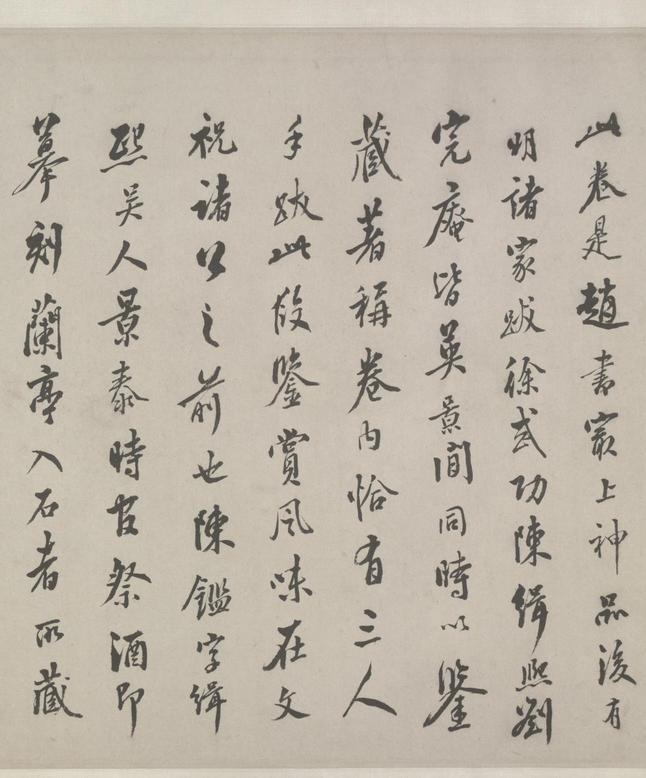 此卷是趙書最上神品後有
明諸家跋徐武功陳緝熙劉
完庵皆英景間同時以鑒
藏著稱卷內恰有三人
手跋此後鑒賞風味在文
祝諸公之前也陳鑑字緝
熙吳人景泰時官祭酒即
摹刻蘭亭入石者所藏